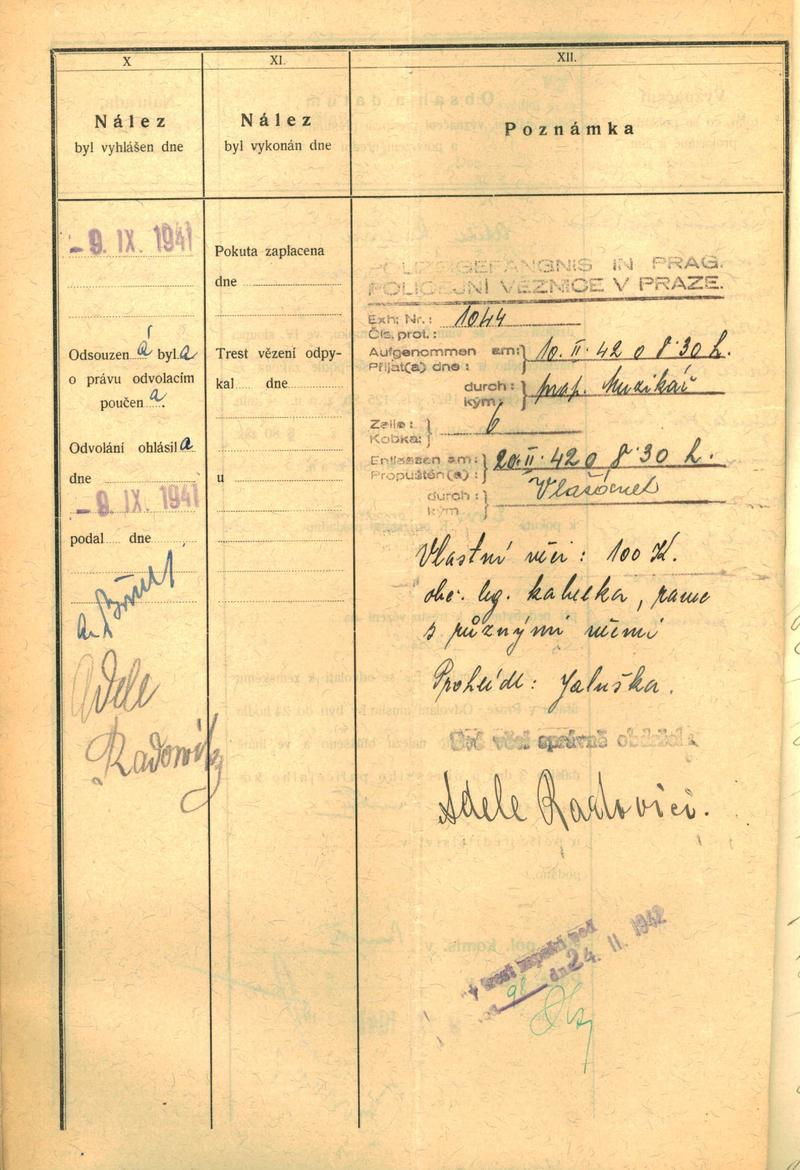 X
Nález
byl vyhlášen dne
- 9. IX. 1941
Odsouzen á byl a
o právu odvolacím
poučen a.
Odvolání ohlásil a
dne
- 9. IX. 1941
podal dne
Adele
Radovici
XI.
Nález
byl vykonán dne
Pokuta zaplacena
dne
Trest vězení odpy-
kal dne
u
XII.
Poznámka
POLIZEIGEFÄNGNIS IN PRAG.
POLICEJNÍ VĚZNICE V PRAZE.
Exh. Nr.: 1044
Čís. prot.:
Aufgenommen am: 10. II. 42 o 8·30 h.
Přijat(a) dne:
durch: prap. Muzikář
kým:
Zelle: 6
Kobka:
Entlassen am: 20. II. 42 o 8·30 h.
Propuštěn(a):
durch:
kým
Vlastní věci: 100 K.
obč. lg. kabelka,
s různými věcmi
Prohlédl: Jaluška.
Své věci správně obdržel:
Adele Radovici.
trest zapsán pod
98 dne 24. II. 1942